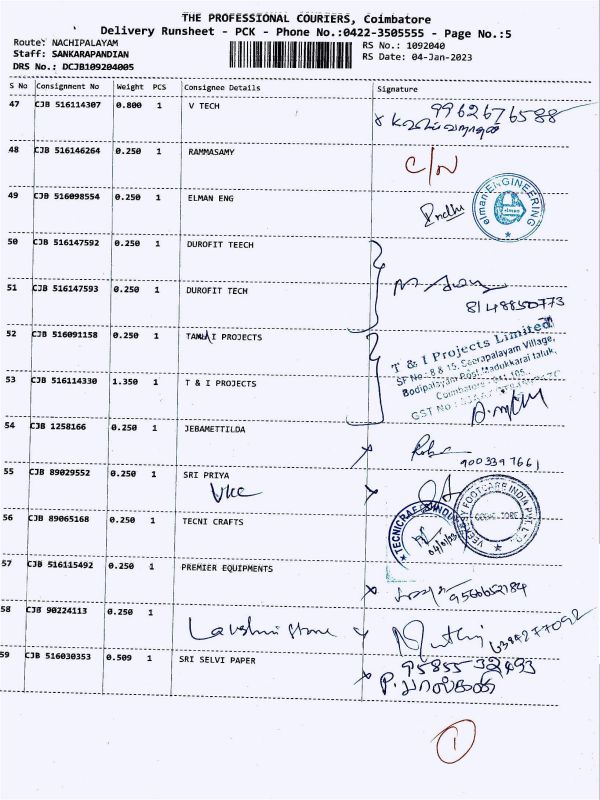 THE PROFESSIONAL COURIERS, Coimbatore
Delivery Runsheet - PCK - Phone No.:0422-3505555 - Page No.:5
Route: NACHIPALAYAM
RS No.: 1092040
Staff: SANKARAPANDIAN
RS Date: 04-Jan-2023
DRS No.: DCJB109204005
S No Consignment No Weight PCS Consignee Details Signature
47 CJB 516114307 0.800 1 V TECH 9962676588
48 CJB 516146264 0.250 1 RAMMASAMY C/N
49 CJB 516098554 0.250 1 ELMAN ENG
elman ENGINEERING
50 CJB 516147592 0.250 1 DUROFIT TEECH
51 CJB 516147593 0.250 1 DUROFIT TECH
8148850773
52 CJB 516091158 0.250 1 I PROJECTS
T & I Projects Limited
SF No: 8 & 15, Seerapalayam Village,
Bodipalayam Post, Madukkarai taluk,
Coimbatore - 641 105.
GST No :
53 CJB 516114330 1.350 1 T & I PROJECTS
54 CJB 1258166 0.250 1 JEBAMETTILDA
9003397661
55 CJB 89029552 0.250 1 SRI PRIYA
VKC
56 CJB 89065168 0.250 1 TECNI CRAFTS
57 CJB 516115492 0.250 1 PREMIER EQUIPMENTS
9566652184
58 CJB 90224113 0.250 1 Lakshmi Store
59 CJB 516030353 0.509 1 SRI SELVI PAPER 9585532493
1